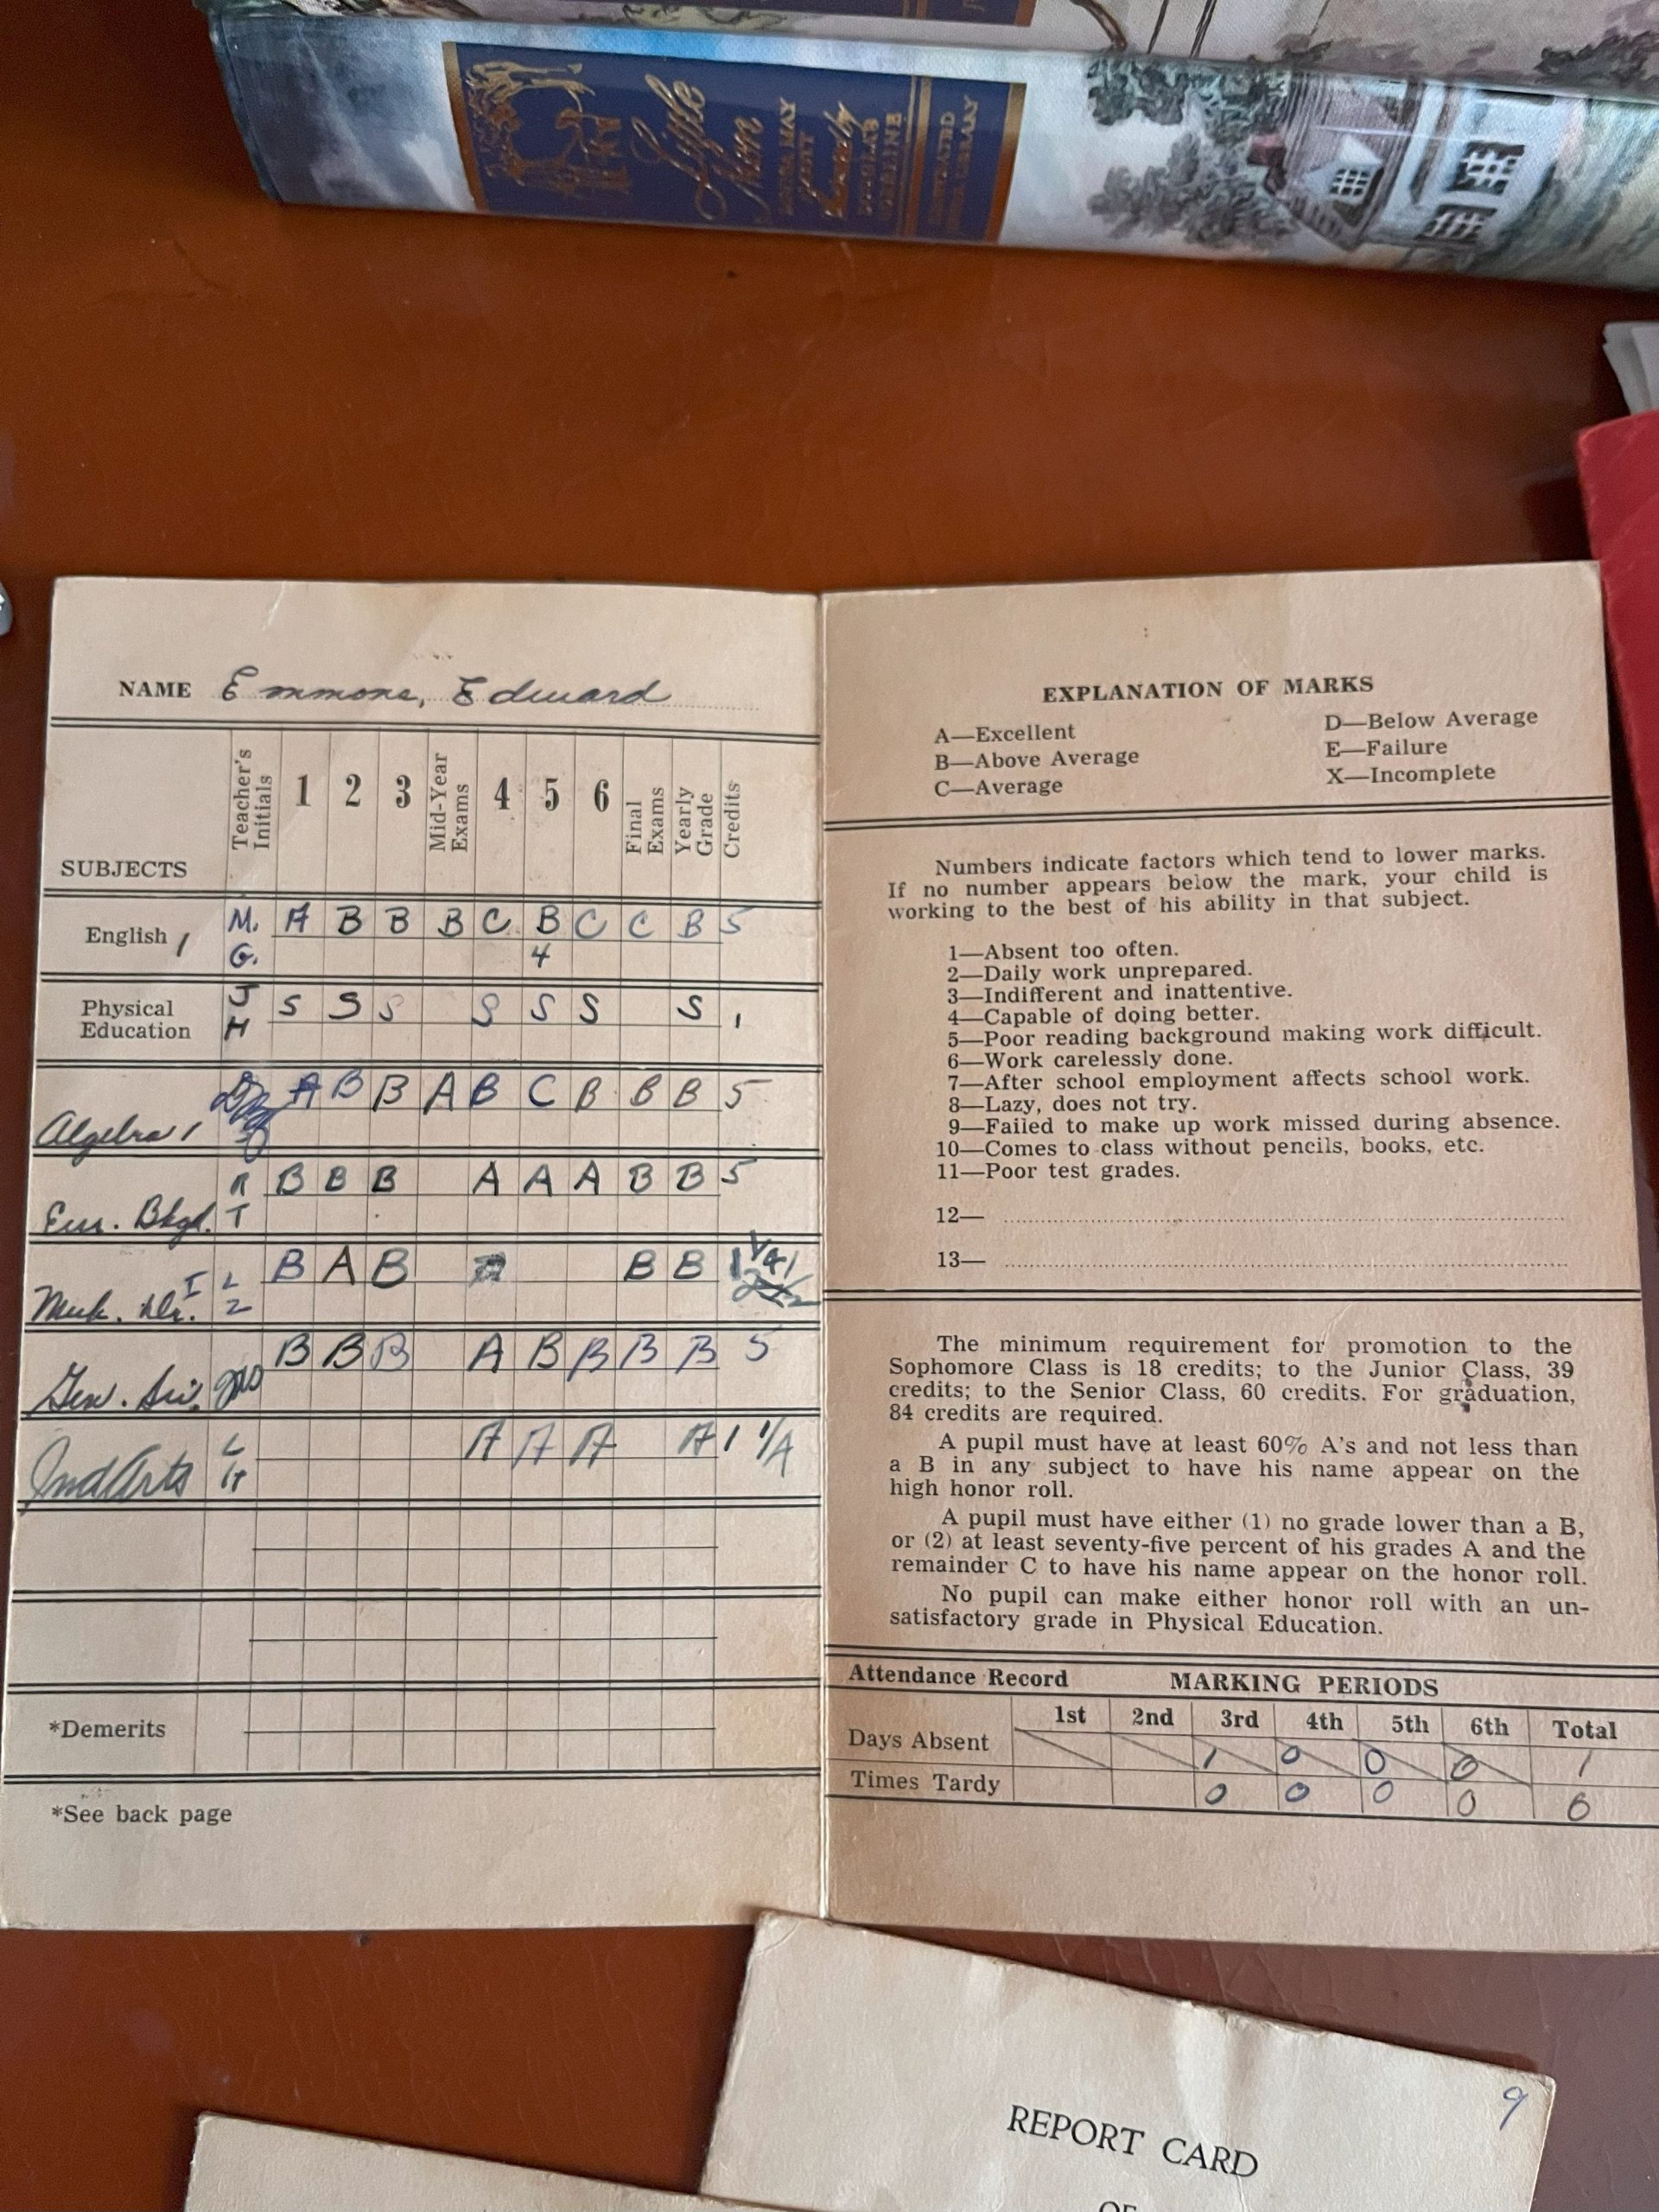 Little
Men
LOUISA MAY
ALCOTT
ILLUSTRATED
JUNIOR LIBRARY
NAME Emmons, Edward
SUBJECTS Teacher's Initials 1 2 3 Mid-Year Exams 4 5 6 Final Exams Yearly Grade Credits
English 1 M. A B B B C B C C B 5
G. 4
Physical Education J H S S S S S S S 1
Algebra 1 A B B A B C B B B 5
Eur. Bkgd. R T B B B A A A B B 5
Mech. Dr. I L Z B A B B B 1 1/4
Gen. Sci. B B B A B B B B 5
Ind Arts L A A A A 1 1/4
*Demerits
*See back page
EXPLANATION OF MARKS
A—Excellent
B—Above Average
C—Average
D—Below Average
E—Failure
X—Incomplete
Numbers indicate factors which tend to lower marks.
If no number appears below the mark, your child is
working to the best of his ability in that subject.
1—Absent too often.
2—Daily work unprepared.
3—Indifferent and inattentive.
4—Capable of doing better.
5—Poor reading background making work difficult.
6—Work carelessly done.
7—After school employment affects school work.
8—Lazy, does not try.
9—Failed to make up work missed during absence.
10—Comes to class without pencils, books, etc.
11—Poor test grades.
12—
13—
The minimum requirement for promotion to the
Sophomore Class is 18 credits; to the Junior Class, 39
credits; to the Senior Class, 60 credits. For graduation,
84 credits are required.
A pupil must have at least 60% A's and not less than
a B in any subject to have his name appear on the
high honor roll.
A pupil must have either (1) no grade lower than a B,
or (2) at least seventy-five percent of his grades A and the
remainder C to have his name appear on the honor roll.
No pupil can make either honor roll with an un-
satisfactory grade in Physical Education.
Attendance Record MARKING PERIODS
1st 2nd 3rd 4th 5th 6th Total
Days Absent 1 0 0 0 1
Times Tardy 0 0 0 0 0
9
REPORT CARD
OF